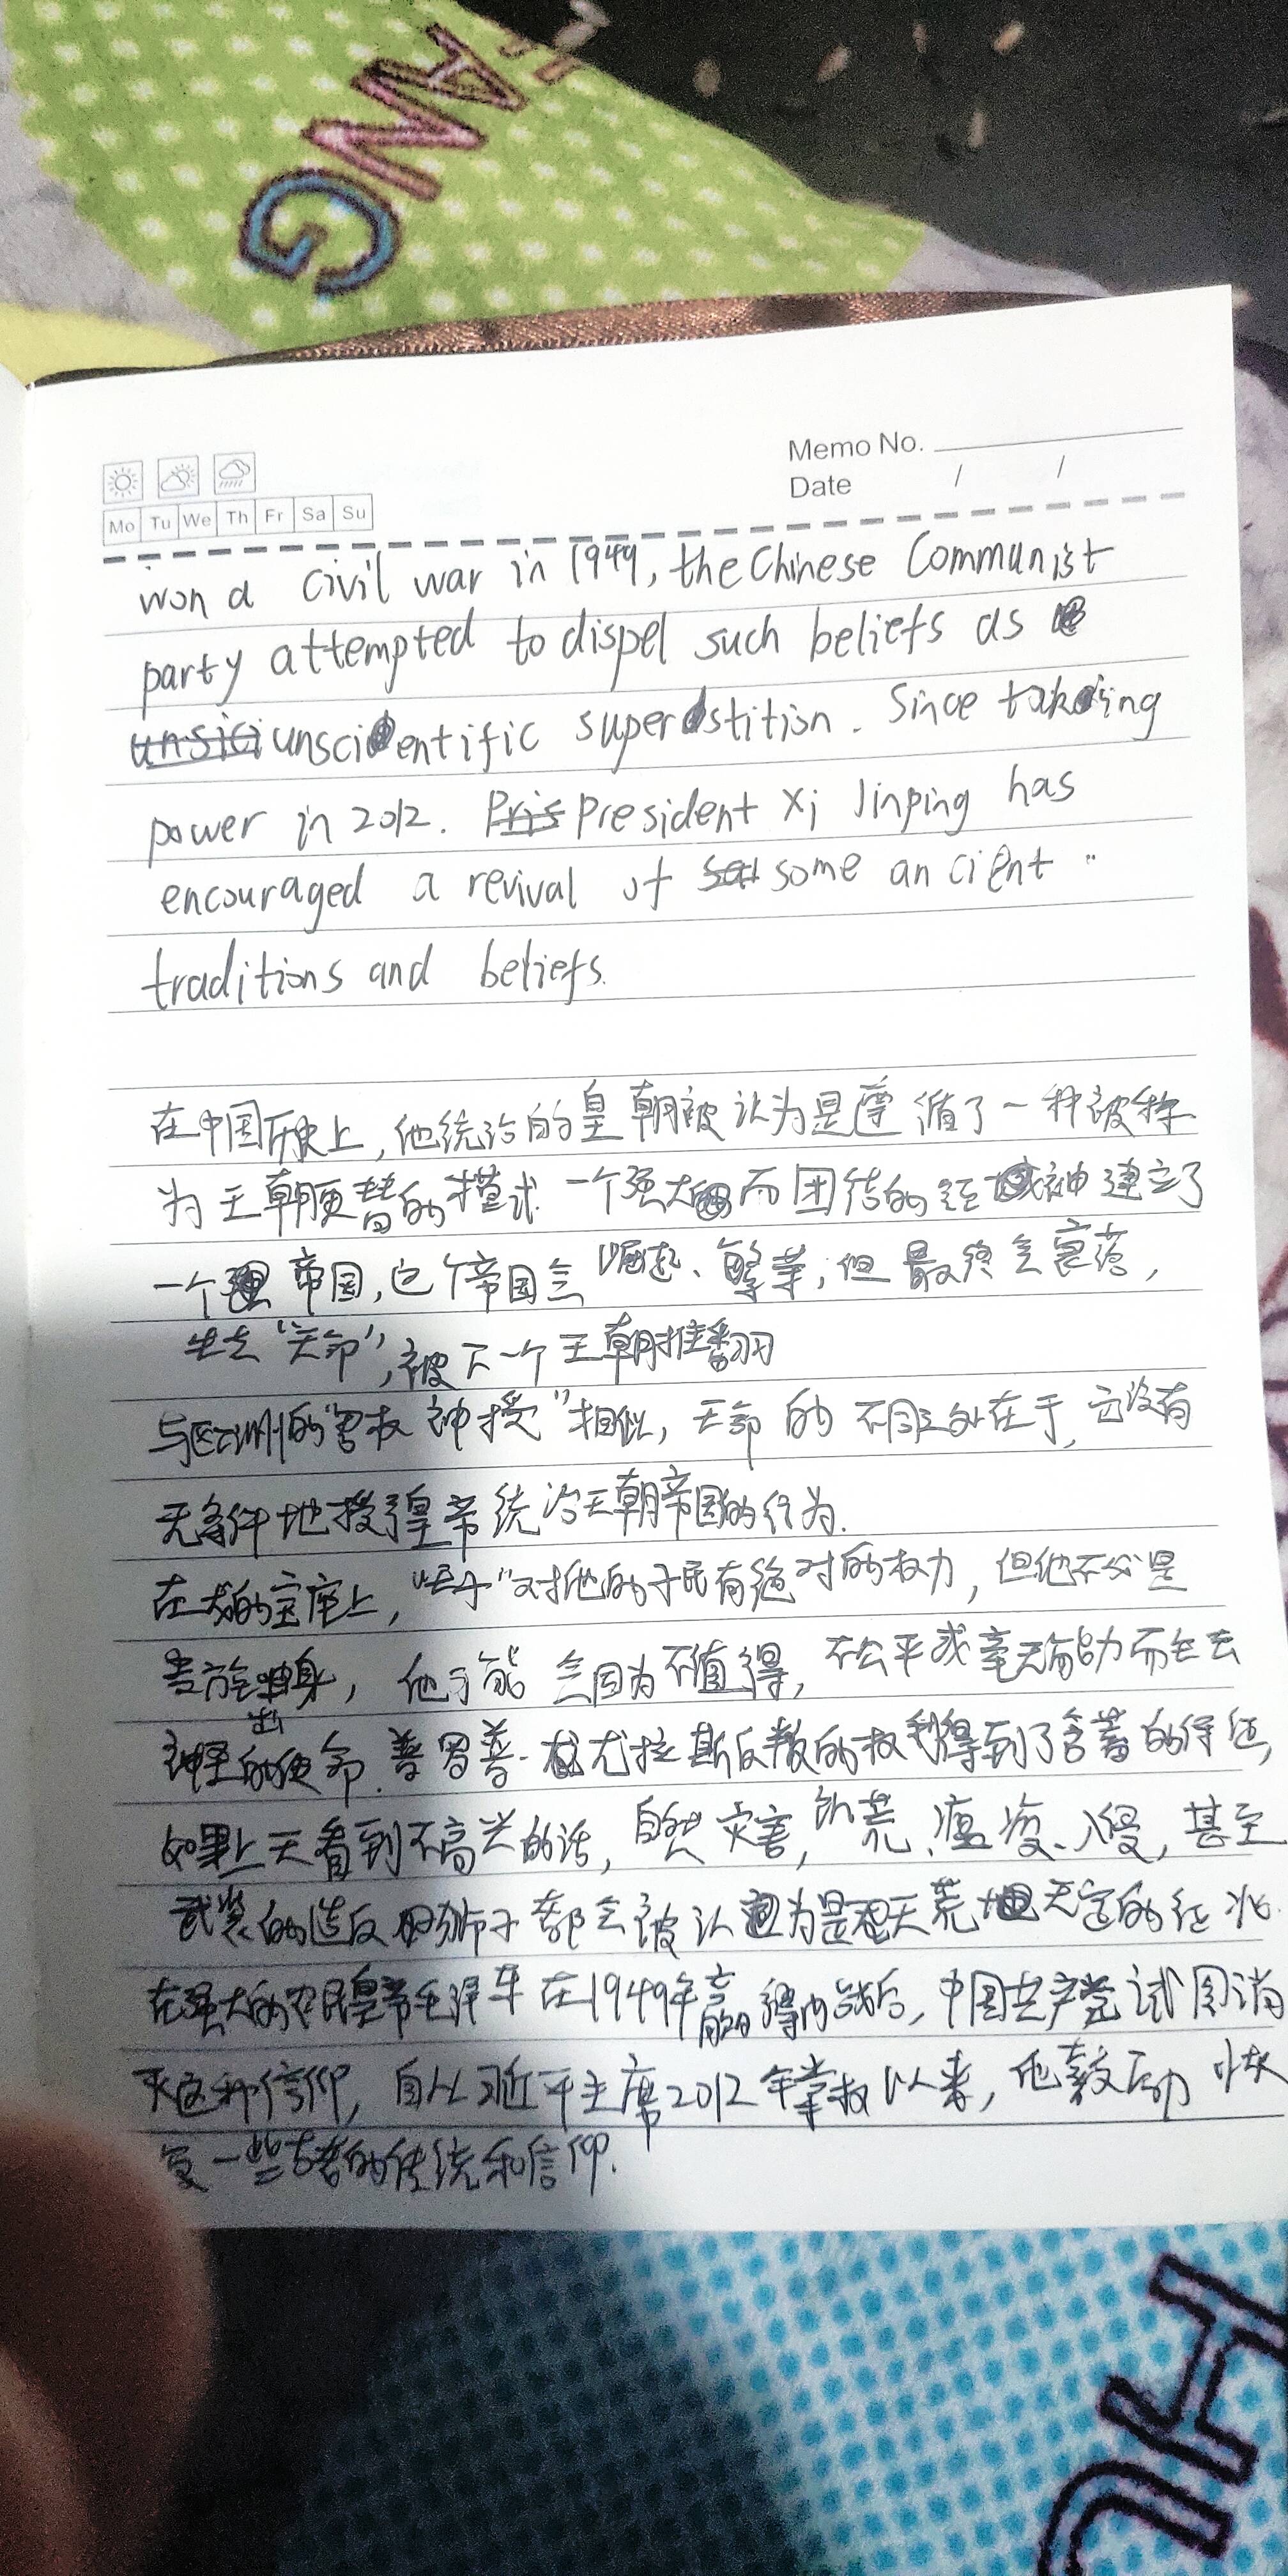 ANG
Memo No.
Date / /
Mo Tu We Th Fr Sa Su
won a civil war in 1949, the Chinese Communist
party attempted to dispel such beliefs as
unscientific superstition. Since taking
power in 2012. President Xi Jinping has
encouraged a revival of some ancient
traditions and beliefs.
在中国历史上,他统治的皇朝被认为是遵循了一种被称
为王朝更替的模式.一个强大而团结的 神建立了
一个 帝国,这个帝国会崛起、繁荣,但最终会衰落,
失去“天命”,被下一个王朝推翻
与欧洲的“君权神授”相似,天命的不同之处在于,它没有
无条件地授予皇帝统治王朝帝国的行为.
在龙的宝座上,“天子”对他的子民有绝对的权力,但他不必是
贵族出身,他可能会因为不值得,不公平或毫无能力而失去
神圣的使命.普罗普·尤拉斯反叛的权利得到了含蓄的保证,
如果上天看到不高兴的话,自然灾害,饥荒、瘟疫、入侵,甚至
武装的造反 都会被认为是 天荒地 的征兆.
在强大的农民皇帝毛泽东在1949年赢得内战后,中国共产党试图消
灭这种信仰,自从习近平主席2012年掌权以来,他鼓励恢
复一些古老的传统和信仰.